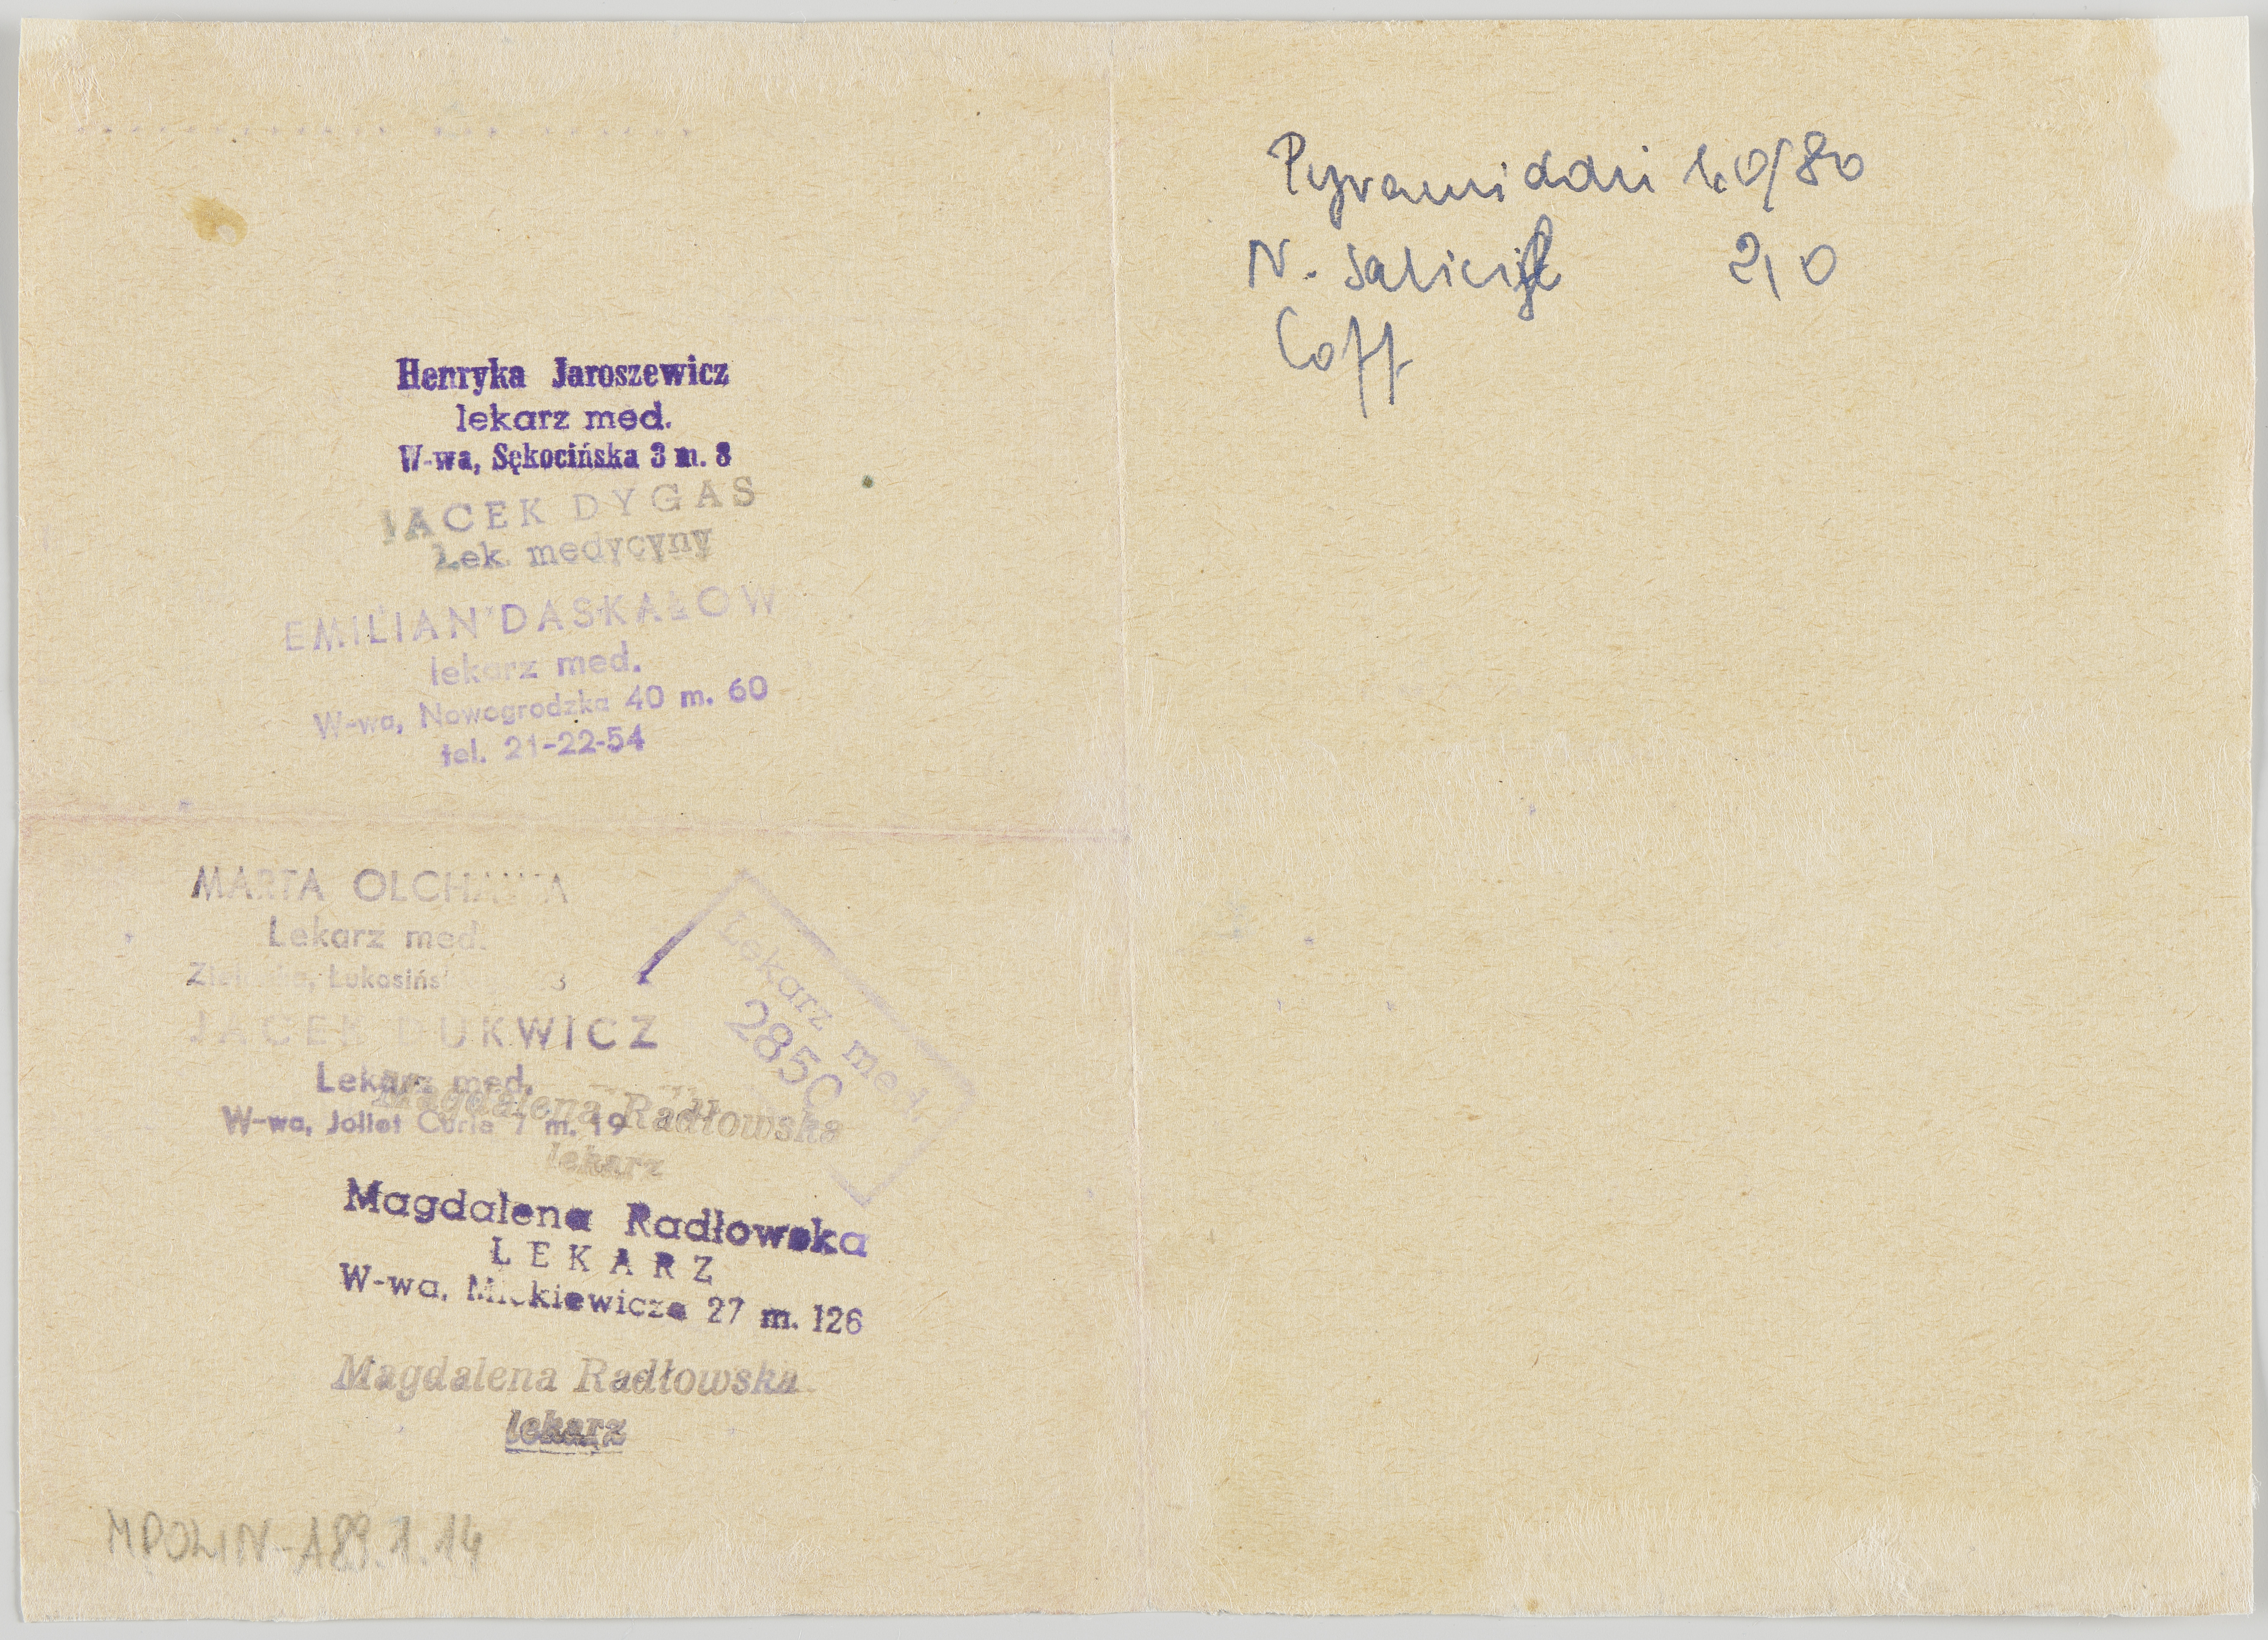 Henryka Jaroszewicz
lekarz med.
W-wa, Sękocińska 3 m. 8
JACEK DYGAS
Lek. medycyny
EMILIAN DASKAŁOW
lekarz med.
W-wa, Nowogrodzka 40 m. 60
tel. 21-22-54
MARTA
Lekarz med.
JACEK BUKWICZ
Lekarz med.
W-wa, Joliot Curie 7 m. 19
Lekarz med.
285C
Magdalena Radłowska
lekarz
Magdalena Radłowska
LEKARZ
W-wa, Mickiewicza 27 m. 126
Magdalena Radłowska
lekarz
MPOLIN-A89.1.14
N. Salicyl 2,0
Coff